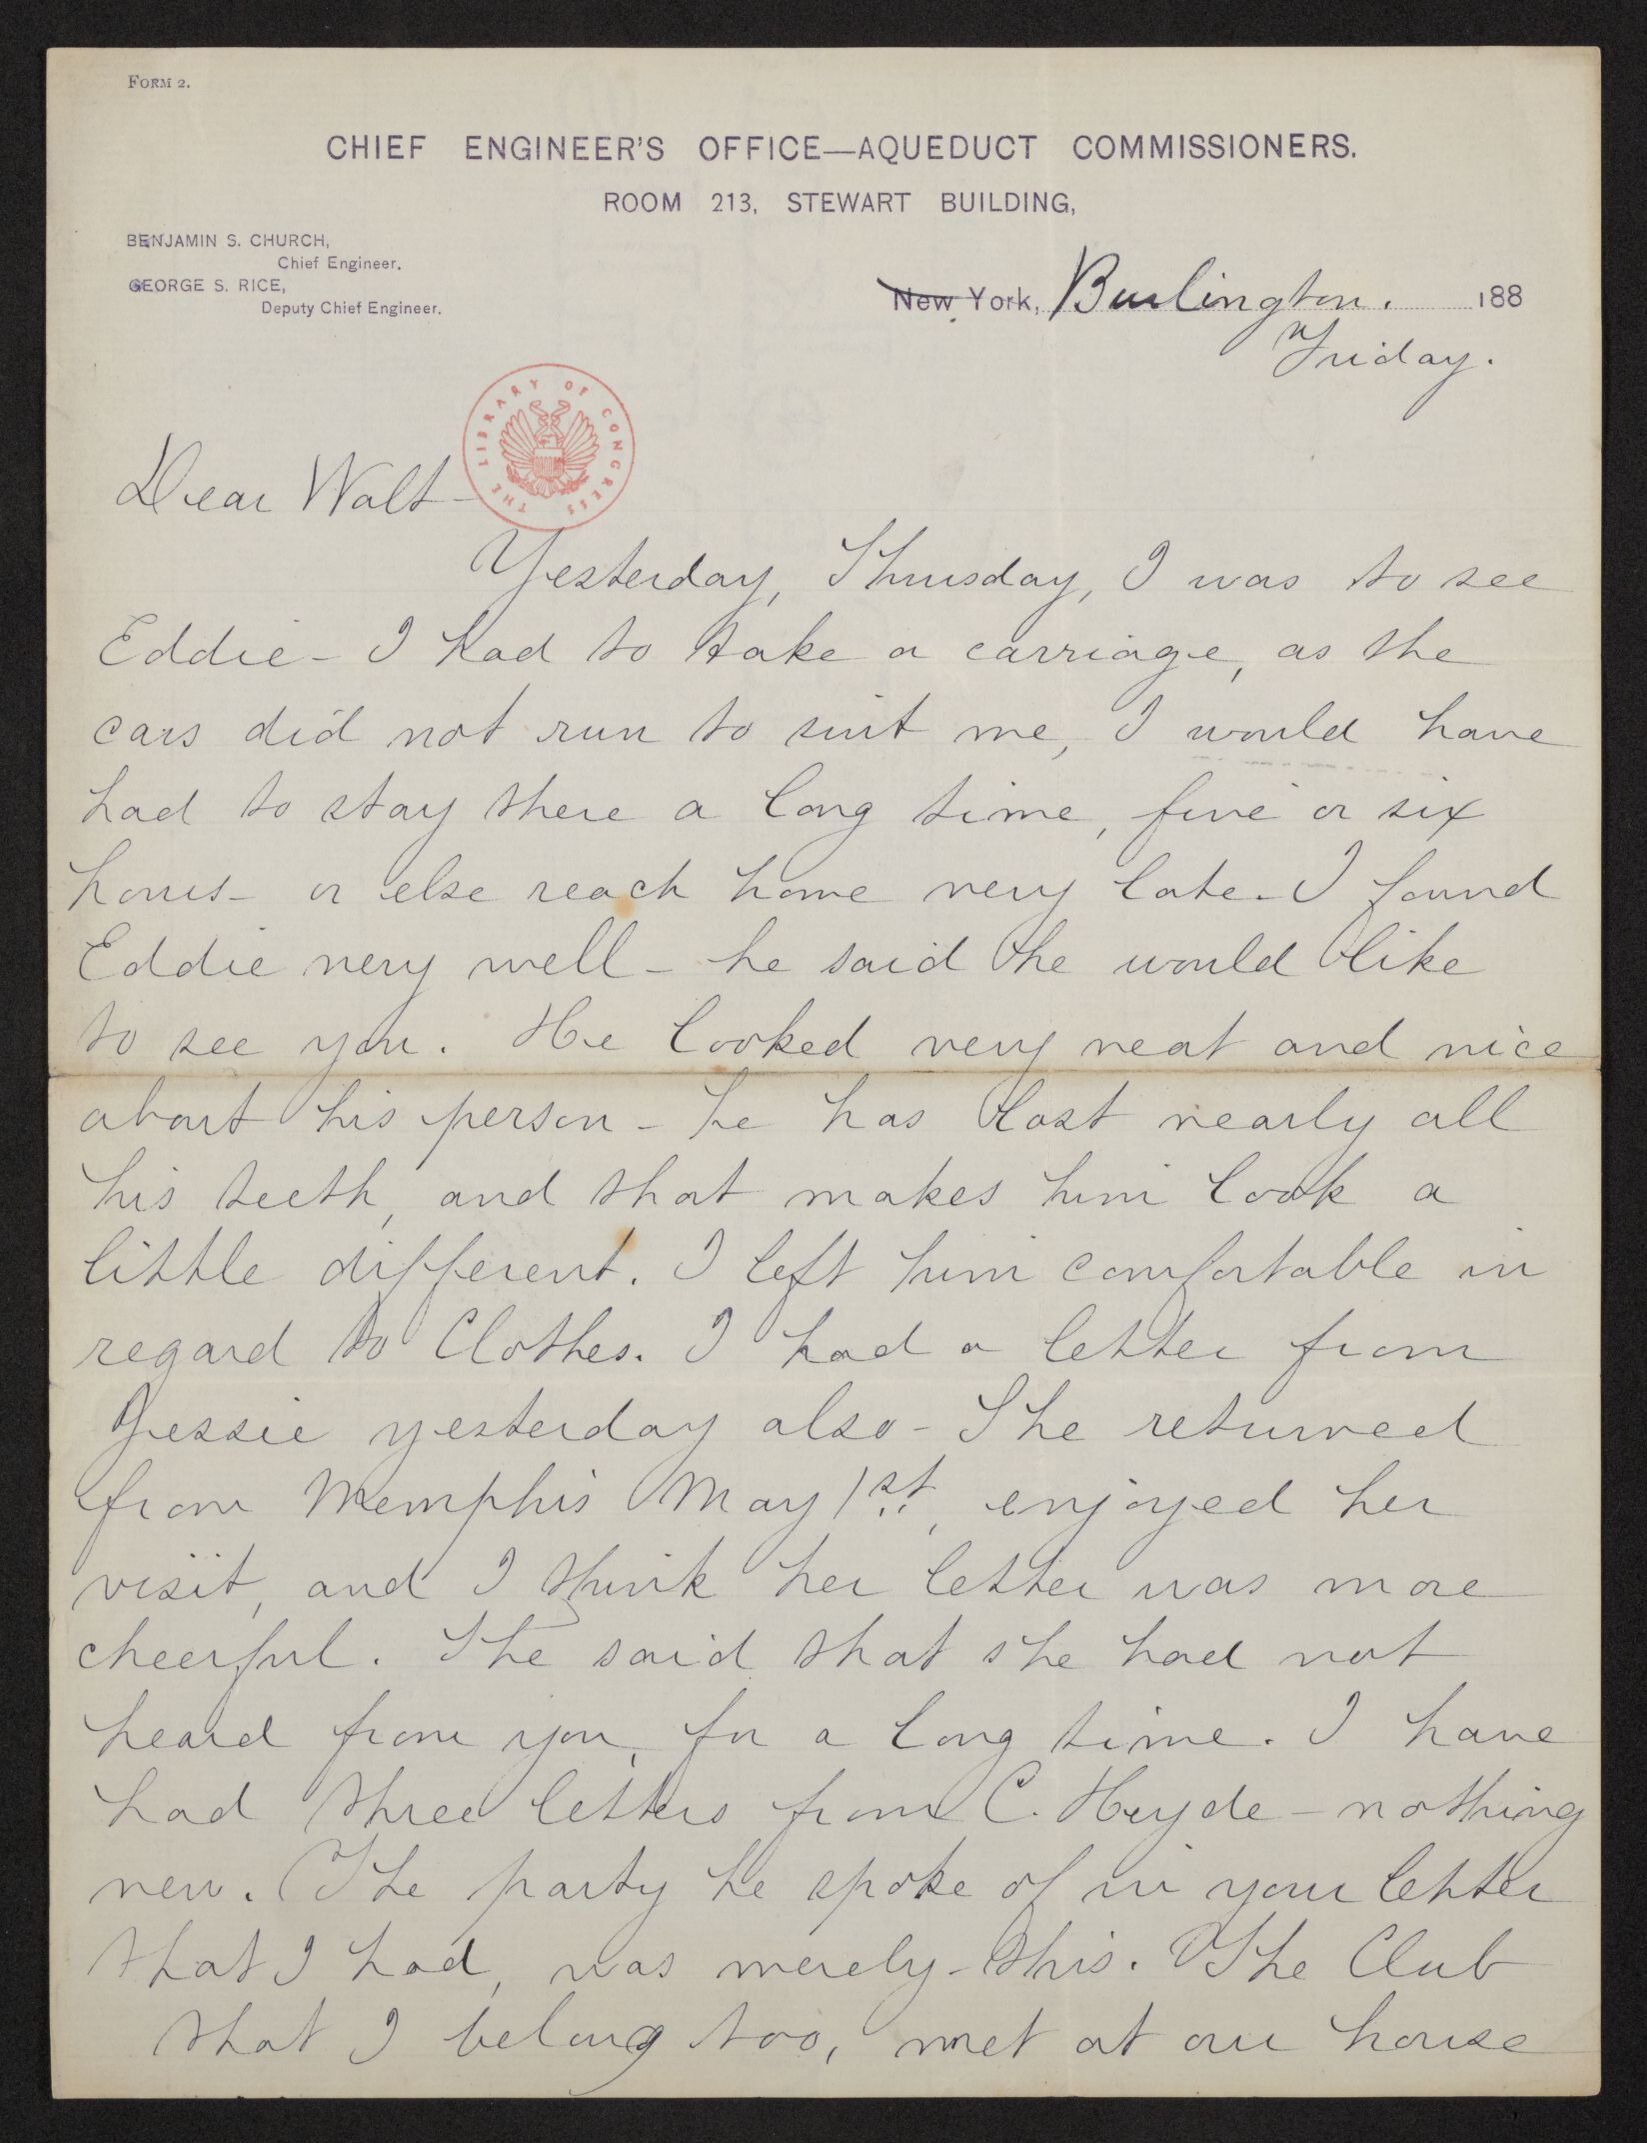 FORM 2.
CHIEF ENGINEER'S OFFICE—AQUEDUCT COMMISSIONERS.
ROOM 213, STEWART BUILDING,
BENJAMIN S. CHURCH,
Chief Engineer.
GEORGE S. RICE,
Deputy Chief Engineer.
New York, Burlington. 188
Friday.
THE LIBRARY OF CONGRESS
Dear Walt—
Yesterday, Thursday, I was to see
Eddie— I had to take a carriage, as the
cars did not run to suit me, I would have
had to stay there a long time, five or six
hours— or else reach home very late— I found
Eddie very well— he said he would like
to see you. He looked very neat and nice
about his person— he has lost nearly all
his teeth, and that makes him look a
little different. I left him comfortable in
regard to Clothes. I had a letter from
Jessie yesterday also— She returned
from Memphis May 1st, enjoyed her
visit, and I think her letter was more
cheerful. She said that she had not
heard from you, for a long time. I have
had three letters from C. Heyde— nothing
new. The party he spoke of in your letter
that I had, was merely this. The Club
that I belong too, met at our house